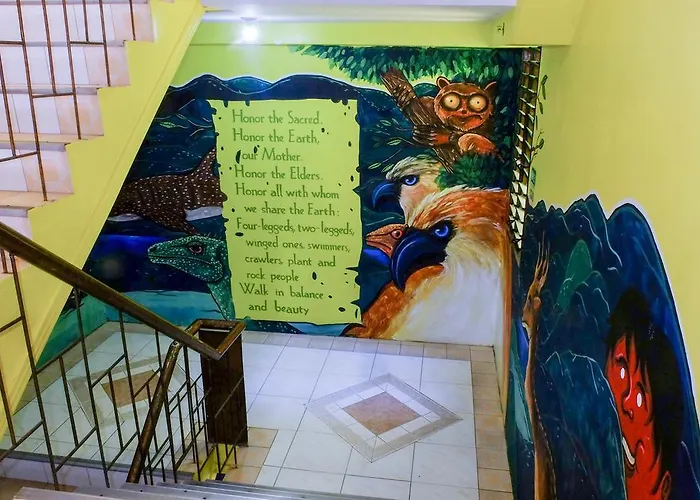 Honor the Sacred.
Honor the Earth,
our Mother.
Honor the Elders.
Honor all with whom
we share the Earth:
Four-leggeds, two-leggeds,
winged ones, swimmers,
crawlers, plant and
rock people
Walk in balance
and beauty